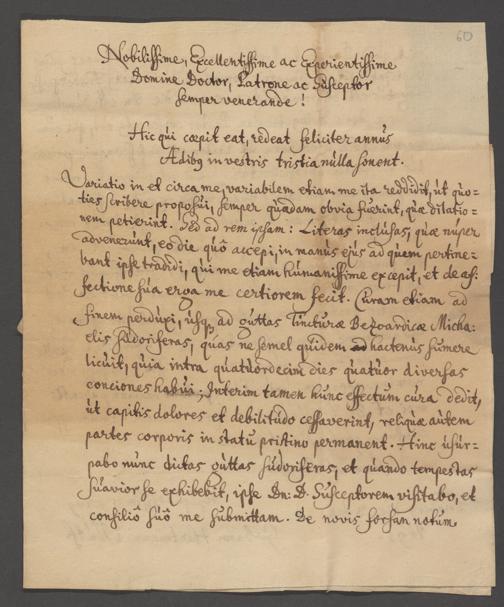 60
Nobilissime, Excellentissime ac Experientissime
Domine Doctor, Patrone ac Susceptor
semper venerande!
Hic qui cœpit eat, redeat feliciter annus
Ædibq in vestris tristia nulla sonent.
Variatio in et circa me, variabilem etiam me ita reddidit, ut quo-
ties scribere proposui, semper quædam obvia fuerint, quæ dilatio-
nem petierint. Sed ad rem ipsam: Literas inclusas, quæ nuper
advenerunt, eodie quô accepi, in manus ejus ad quem pertine-
bant ipse tradidi, qui me etiam humanissime excepit, et de af-
fectione sua erga me certiorem fecit. Curam etiam ad
finem perduxi, usq ad guttas Tincturæ Bezoardicæ Micha-
elis sudoriferas, quas ne semel quidem hactenus sumere
licuit, quia intra quatuordecim dies quatuor diversas
conciones habui. Interim tamen hunc effectum cura dedit,
ut capitis dolores et debilitudo cessaverint, reliquæ autem
partes corporis in statu pristino permanent. Hinc usur-
pabo nunc dictas guttas sudoriferas, et quando tempestas
suavior se exhibebit, ipse Dn: D. Susceptorem visitabo, et
consiliô suô me submittam. De novis forsan notum